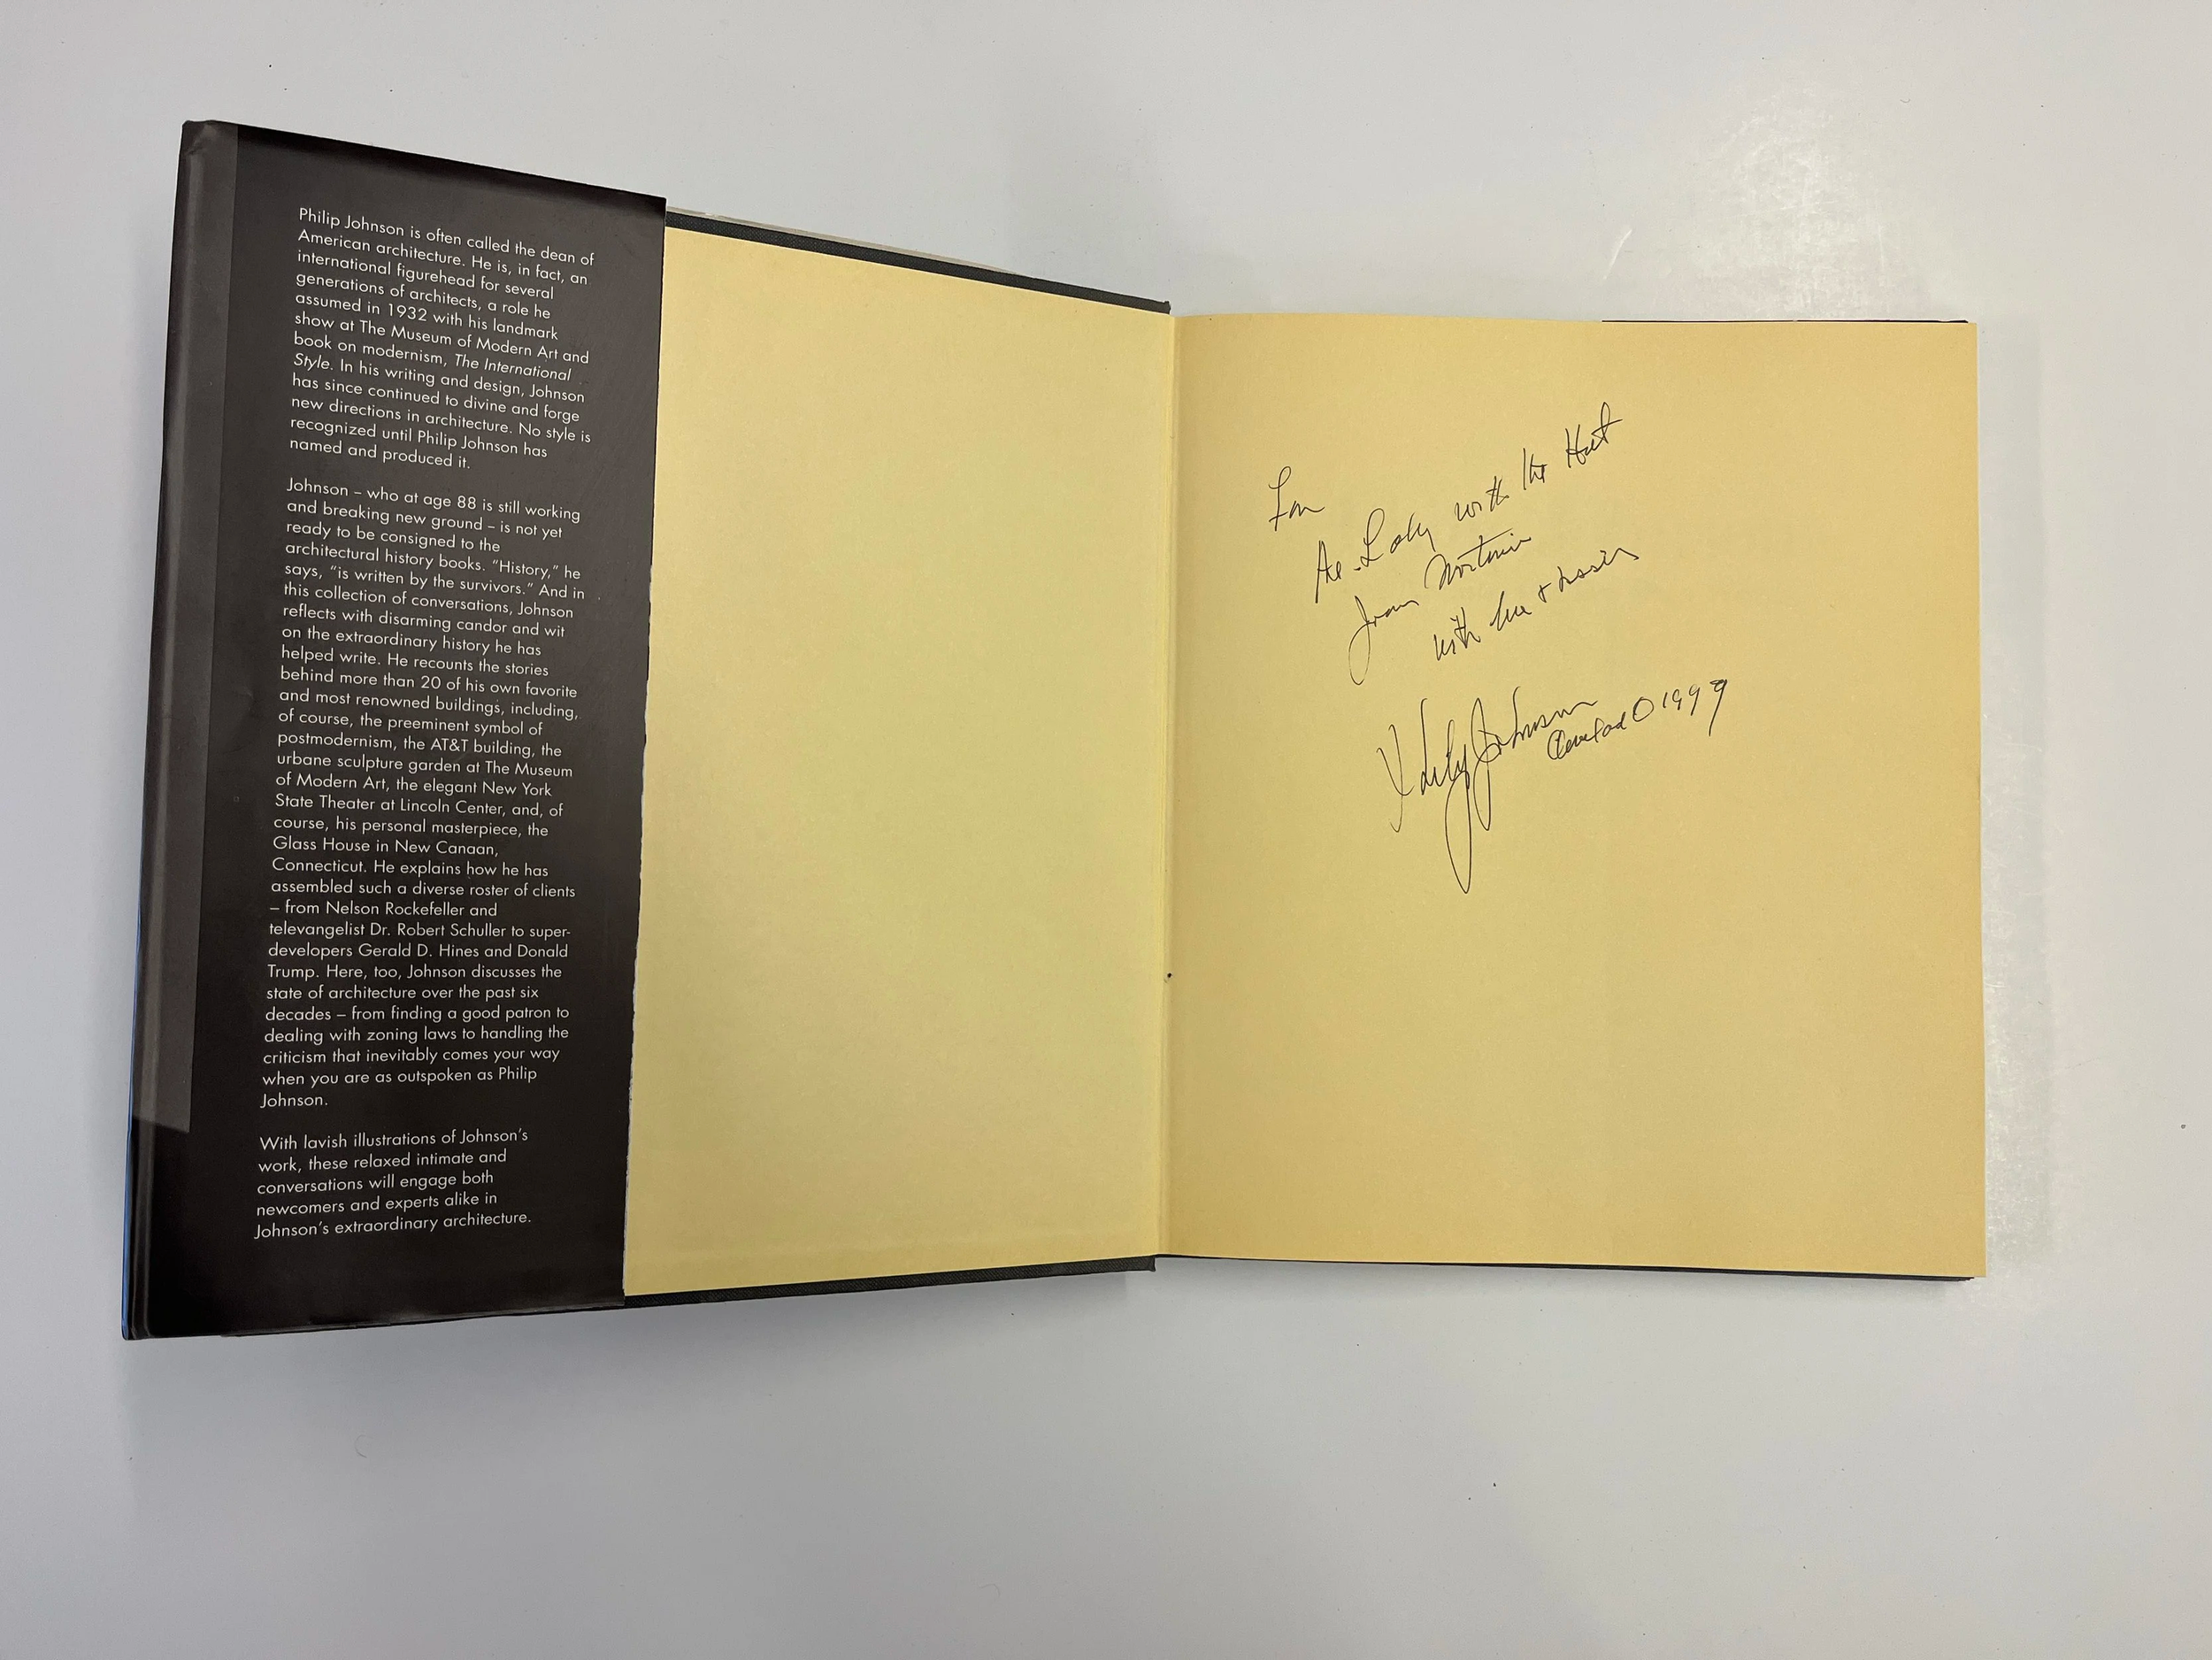 Philip Johnson is often called the dean of
American architecture. He is, in fact, an
international figurehead for several
generations of architects, a role he
assumed in 1932 with his landmark
show at The Museum of Modern Art and
book on modernism, The International
Style. In his writing and design, Johnson
has since continued to divine and forge
new directions in architecture. No style is
recognized until Philip Johnson has
named and produced it.
Johnson – who at age 88 is still working
and breaking new ground – is not yet
ready to be consigned to the
architectural history books. “History,” he
says, “is written by the survivors.” And in
this collection of conversations, Johnson
reflects with disarming candor and wit
on the extraordinary history he has
helped write. He recounts the stories
behind more than 20 of his own favorite
and most renowned buildings, including,
of course, the preeminent symbol of
postmodernism, the AT&T building, the
urbane sculpture garden at The Museum
of Modern Art, the elegant New York
State Theater at Lincoln Center, and, of
course, his personal masterpiece, the
Glass House in New Canaan,
Connecticut. He explains how he has
assembled such a diverse roster of clients
– from Nelson Rockefeller and
televangelist Dr. Robert Schuller to super-
developers Gerald D. Hines and Donald
Trump. Here, too, Johnson discusses the
state of architecture over the past six
decades – from finding a good patron to
dealing with zoning laws to handling the
criticism that inevitably comes your way
when you are as outspoken as Philip
Johnson.
With lavish illustrations of Johnson’s
work, these relaxed intimate and
conversations will engage both
newcomers and experts alike in
Johnson’s extraordinary architecture.
For
the Lady with the Hat
Joan
with
Philip Johnson
1999